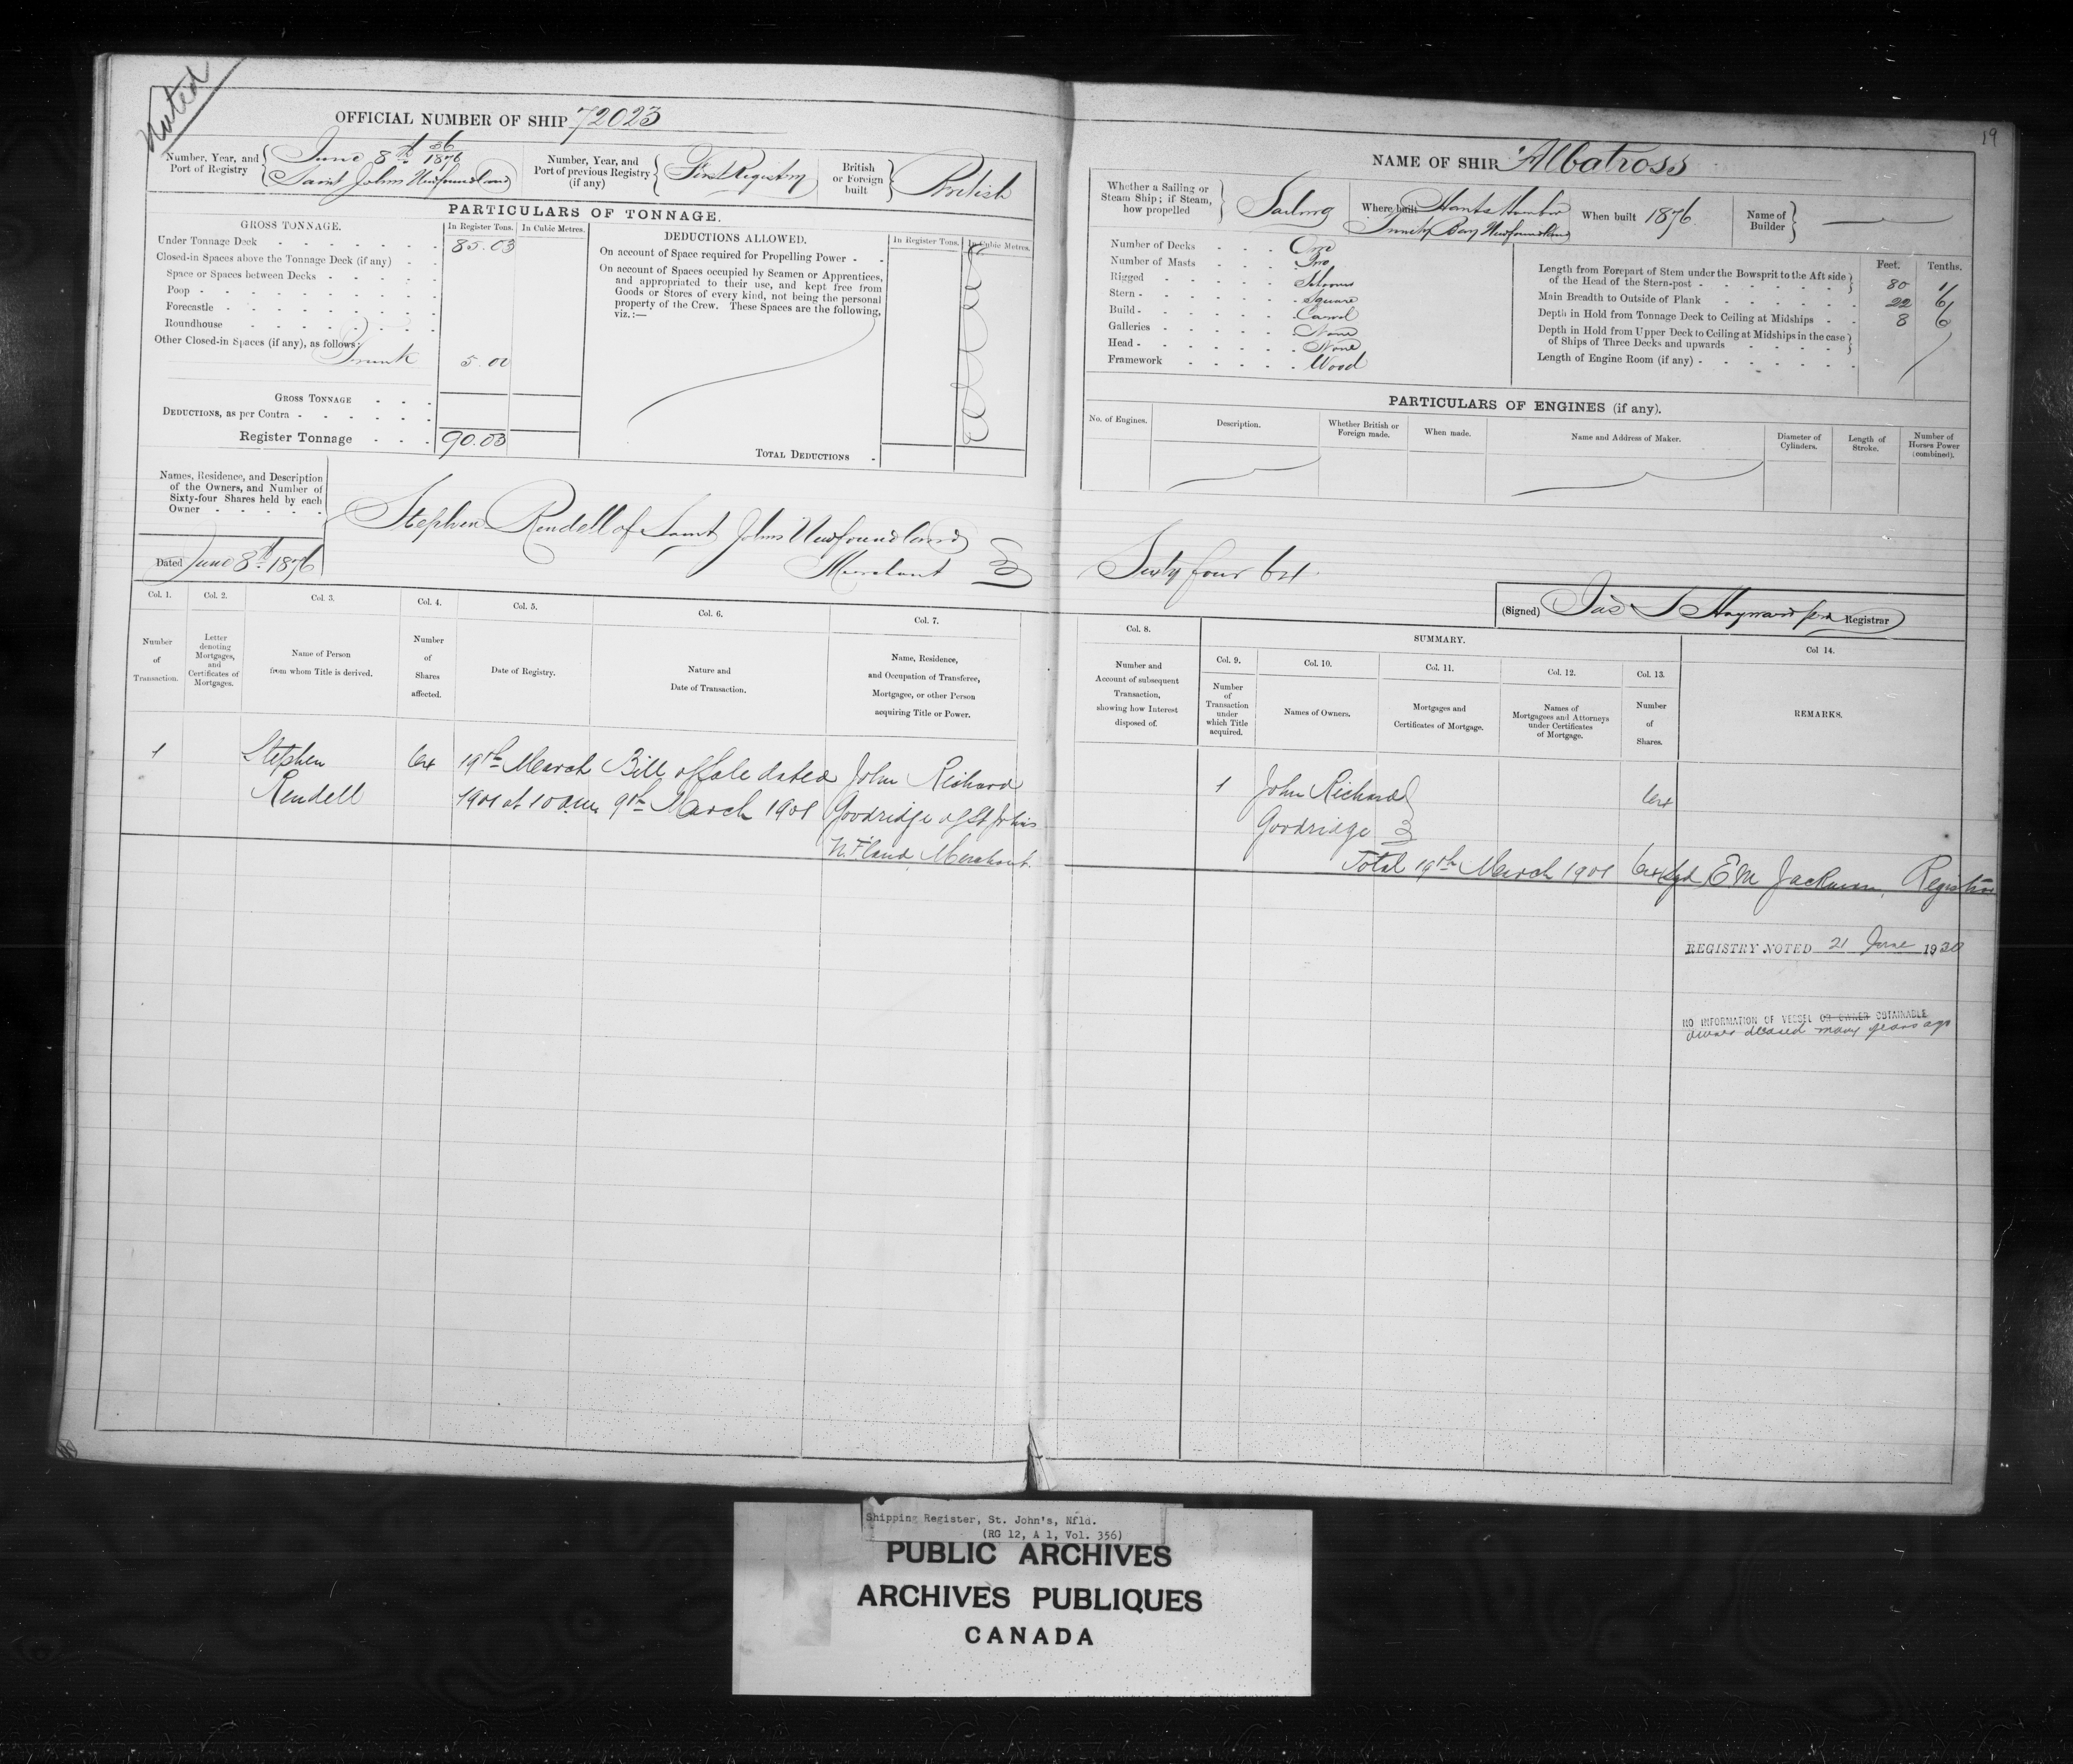 Noted
OFFICIAL NUMBER OF SHIP 72023
Number, Year, and Port of Registry
June 8th 36/1876
Saint Johns Newfoundland
Number, Year, and Port of previous Registry (if any)
First Registry
British or Foreign built
British
PARTICULARS OF TONNAGE.
GROSS TONNAGE.
In Register Tons.
In Cubic Metres.
Under Tonnage Deck 85.03
Closed-in Spaces above the Tonnage Deck (if any)
Space or Spaces between Decks
Poop
Forecastle
Roundhouse
Other Closed-in Spaces (if any), as follows:
Trunk 5.00
GROSS TONNAGE
DEDUCTIONS, as per Contra
Register Tonnage 90.03
DEDUCTIONS ALLOWED.
In Register Tons.
In Cubic Metres.
On account of Space required for Propelling Power
On account of Spaces occupied by Seamen or Apprentices,
and appropriated to their use, and kept free from
Goods or Stores of every kind, not being the personal
property of the Crew. These Spaces are the following,
viz.:—
TOTAL DEDUCTIONS
Names, Residence, and Description
of the Owners, and Number of
Sixty-four Shares held by each
Owner
Stephen Rendell of Saint Johns Newfoundland
Merchant
Dated June 8th 1876
19
NAME OF SHIP "Albatross
Whether a Sailing or
Steam Ship; if Steam,
how propelled
Sailing
Where built Hants Harbor
Trinity Bay Newfoundland
When built 1876
Name of Builder
Number of Decks One
Number of Masts Two
Rigged Schooner
Stern Square
Build Carvel
Galleries None
Head None
Framework Wood
Feet. Tenths.
Length from Forepart of Stem under the Bowsprit to the Aft side
of the Head of the Stern-post 80 1/
Main Breadth to Outside of Plank 22 6/
Depth in Hold from Tonnage Deck to Ceiling at Midships 8 6
Depth in Hold from Upper Deck to Ceiling at Midships in the case
of Ships of Three Decks and upwards
Length of Engine Room (if any)
PARTICULARS OF ENGINES (if any).
No. of Engines.
Description.
Whether British or Foreign made.
When made.
Name and Address of Maker.
Diameter of Cylinders.
Length of Stroke.
Number of Horses Power (combined).
Sixty four 64
(Signed) Jas S Hayward Registrar
Col. 1.
Number of Transaction.
Col. 2.
Letter denoting Mortgages, and Certificates of Mortgages.
Col. 3.
Name of Person from whom Title is derived.
Col. 4.
Number of Shares affected.
Col. 5.
Date of Registry.
Col. 6.
Nature and Date of Transaction.
Col. 7.
Name, Residence, and Occupation of Transferee, Mortgagee, or other Person acquiring Title or Power.
Col. 8.
Number and Account of subsequent Transaction, showing how Interest disposed of.
SUMMARY.
Col. 9.
Number of Transaction under which Title acquired.
Col. 10.
Names of Owners.
Col. 11.
Mortgages and Certificates of Mortgage.
Col. 12.
Names of Mortgagees and Attorneys under Certificates of Mortgage.
Col. 13.
Number of Shares.
Col 14.
REMARKS.
1 Stephen 64 19th March Bill of Sale dated John Richard
Rendell 1901 at 10 am 9th March 1901 Goodridge of St Johns
Nfland Merchant
1 John Richard 64
Goodridge
Total 19th March 1901 64 Sgd E M Jackman, Registrar
REGISTRY NOTED 21 June 1920
NO INFORMATION OF VESSEL OR OWNER OBTAINABLE
owner deceased many years ago
Shipping Register, St. John's, Nfld.
(RG 12, A 1, Vol. 356)
PUBLIC ARCHIVES
ARCHIVES PUBLIQUES
CANADA